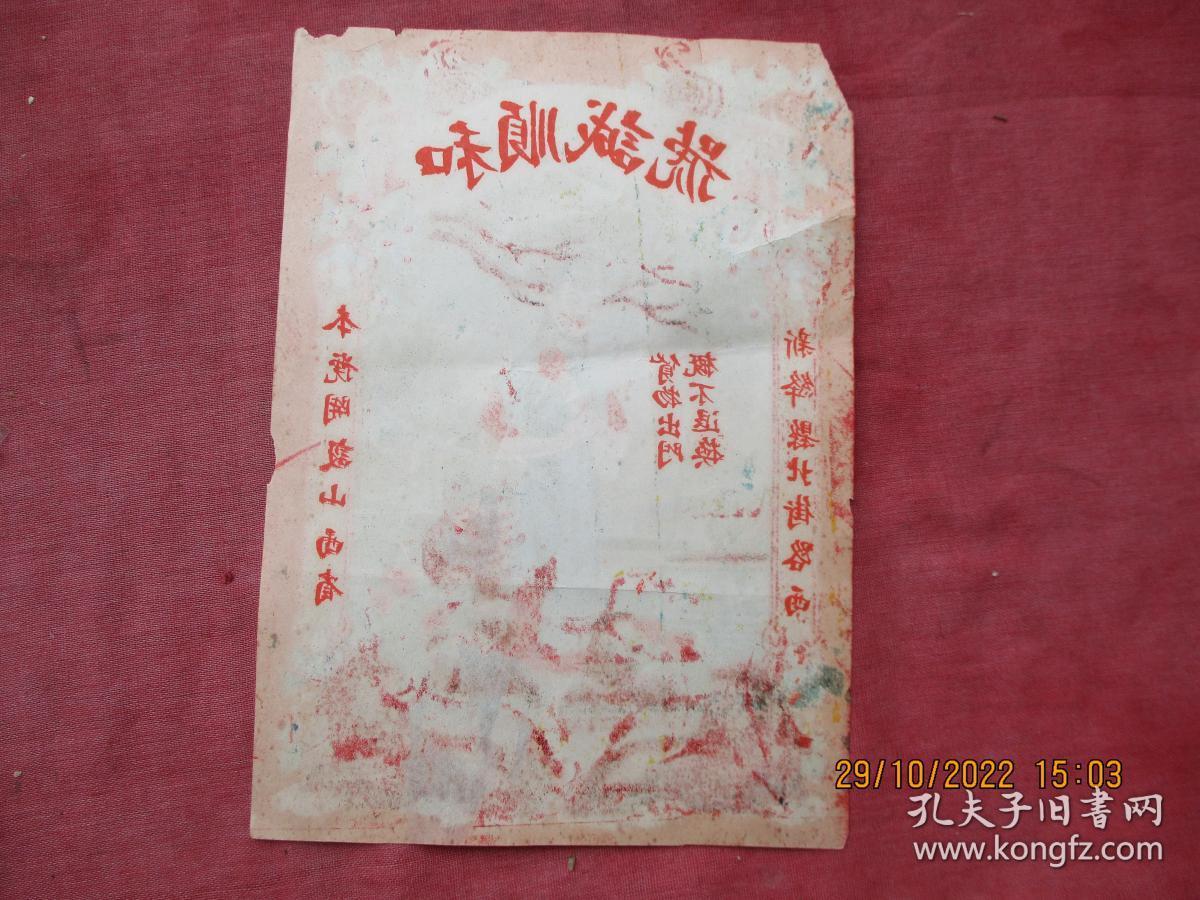 和順誠號
本號開設山西省
貨物出門
概不退換
新絳縣北街路西
29/10/2022 15:03
孔夫子旧書网
www.kongfz.com